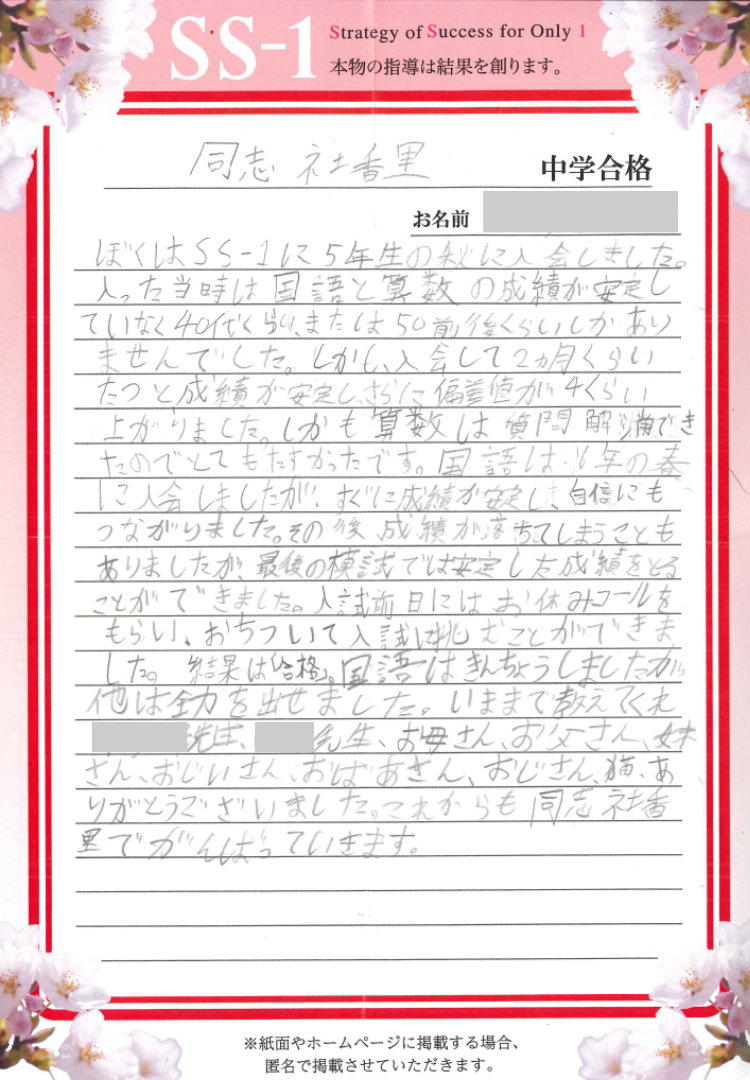 SS-1
Strategy of Success for Only 1
本物の指導は結果を創ります。
同志社香里
中学合格
お名前
ぼくはSS-1に5年生の秋に入会しました。
入った当時は国語と算数の成績が安定し
ていなく40代くらい、または50前後くらいしかあり
ませんでした。しかも、入会して2ヵ月くらい
たつと成績が安定し、さらに偏差値が4くらい
上がりました。しかも算数は質問解消でき
たのでとてもたすかったです。国語は6年の春
に入会しましたが、すぐに成績が安定し、自信にも
つながりました。その後、成績が落ちてしまうことも
ありましたが、最後の模試では安定した成績をとる
ことができました。入試前日にはお休みコールを
もらい、おちついて入試に挑むことができま
した。結果は「合格」。国語はきんちょうしましたが
他は全力を出せました。いままで教えてくれ
先生、先生、お母さん、お父さん、妹
さん、おじいさん、おばあさん、おじさん、猫、あ
りがとうございました。これからも同志社香
里でがんばっていきます。
※紙面やホームページに掲載する場合、
匿名で掲載させていただきます。